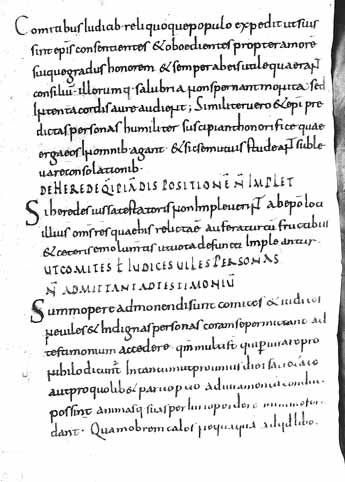 Comitibus iudicib· reliquoque populo expedit ut suis
sint epis consentientes & oboedientes propter amorē
suique gradus honorem & semper abeis utile quaerant
consiliū· illorumq· salubria non spernant monita sed
intenta cordis aure audiant; Similiter uero & epi pre
dictas personas humiliter suscipiant honorifice quae
erga eos in omnib· agant· & sic se mutuis studeant suble
uare consolationib·
DE HEREDE QI PIA DIS POSITIONĒ N̄ IMPLET
Si heredes iussa testatoris non impleuerint ab epō loci
illius omīs res quae his relictae auferatur cū fructibus
& ceteris emolumtis ut uota defuncti impleantur·
UT COMITES ł IUDICES UILES PERSONAS
N̄ ADMITTANT AD TESTIMONIŪ
Summopere admonendi sunt comites & iudices
ne uiles & indignas personas coram se permittant ad
testimonium accedere qm̄ multi st̄ qui periuria pro
nihilo ducunt in tantum ut pro unius diei
aut pro quolib& paruo p&io adiuramentum
possint animasq· suas perire
dant· Quamobrem tales